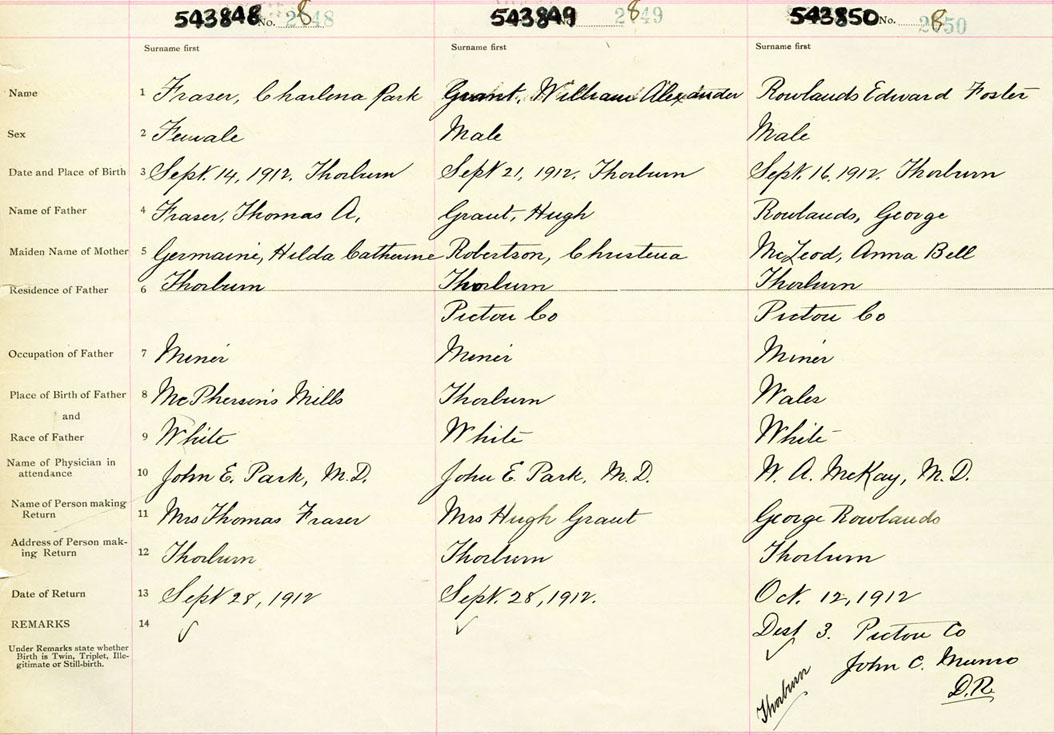 543848 No. 2848 543849 2849 543850 No. 2850
Surname first Surname first Surname first
Name 1 Fraser, Charlena Park Grant, William Alexander Rowlands Edward Foster
Sex 2 Female Male Male
Date and Place of Birth 3 Sept. 14, 1912. Thorburn Sept 21, 1912. Thorburn Sept. 16, 1912. Thorburn
Name of Father 4 Fraser, Thomas A. Grant, Hugh Rowlands, George
Maiden Name of Mother 5 Germaine, Hilda Catherine Robertson, Christena McLeod, Anna Bell
Residence of Father 6 Thorburn Thorburn Thorburn
Pictou Co Pictou Co
Occupation of Father 7 Miner Miner Miner
Place of Birth of Father 8 McPherson's Mills Thorburn Wales
and
Race of Father 9 White White White
Name of Physician in
attendance 10 John E. Park, M.D. John E. Park, M.D. W. A. McKay, M.D.
Name of Person making
Return 11 Mrs Thomas Fraser Mrs Hugh Grant George Rowlands
Address of Person mak-
ing Return 12 Thorburn Thorburn Thorburn
Date of Return 13 Sept 28, 1912 Sept. 28, 1912. Oct. 12, 1912
REMARKS 14 Dist 3. Pictou Co
Under Remarks state whether
Birth is Twin, Triplet, Ille-
gitimate or Still-birth.
John C. Munro
D.R.
Thorburn